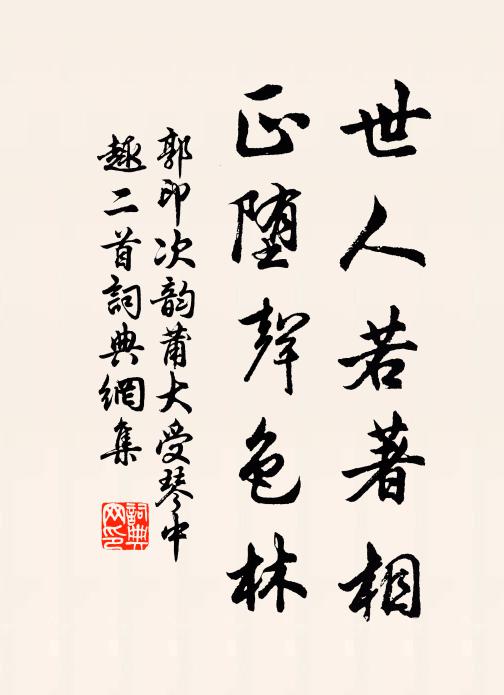 世人若著相
正堕聲色林
郭印次韵莆大受琴中
趣二首詞典網集
詞典
网印